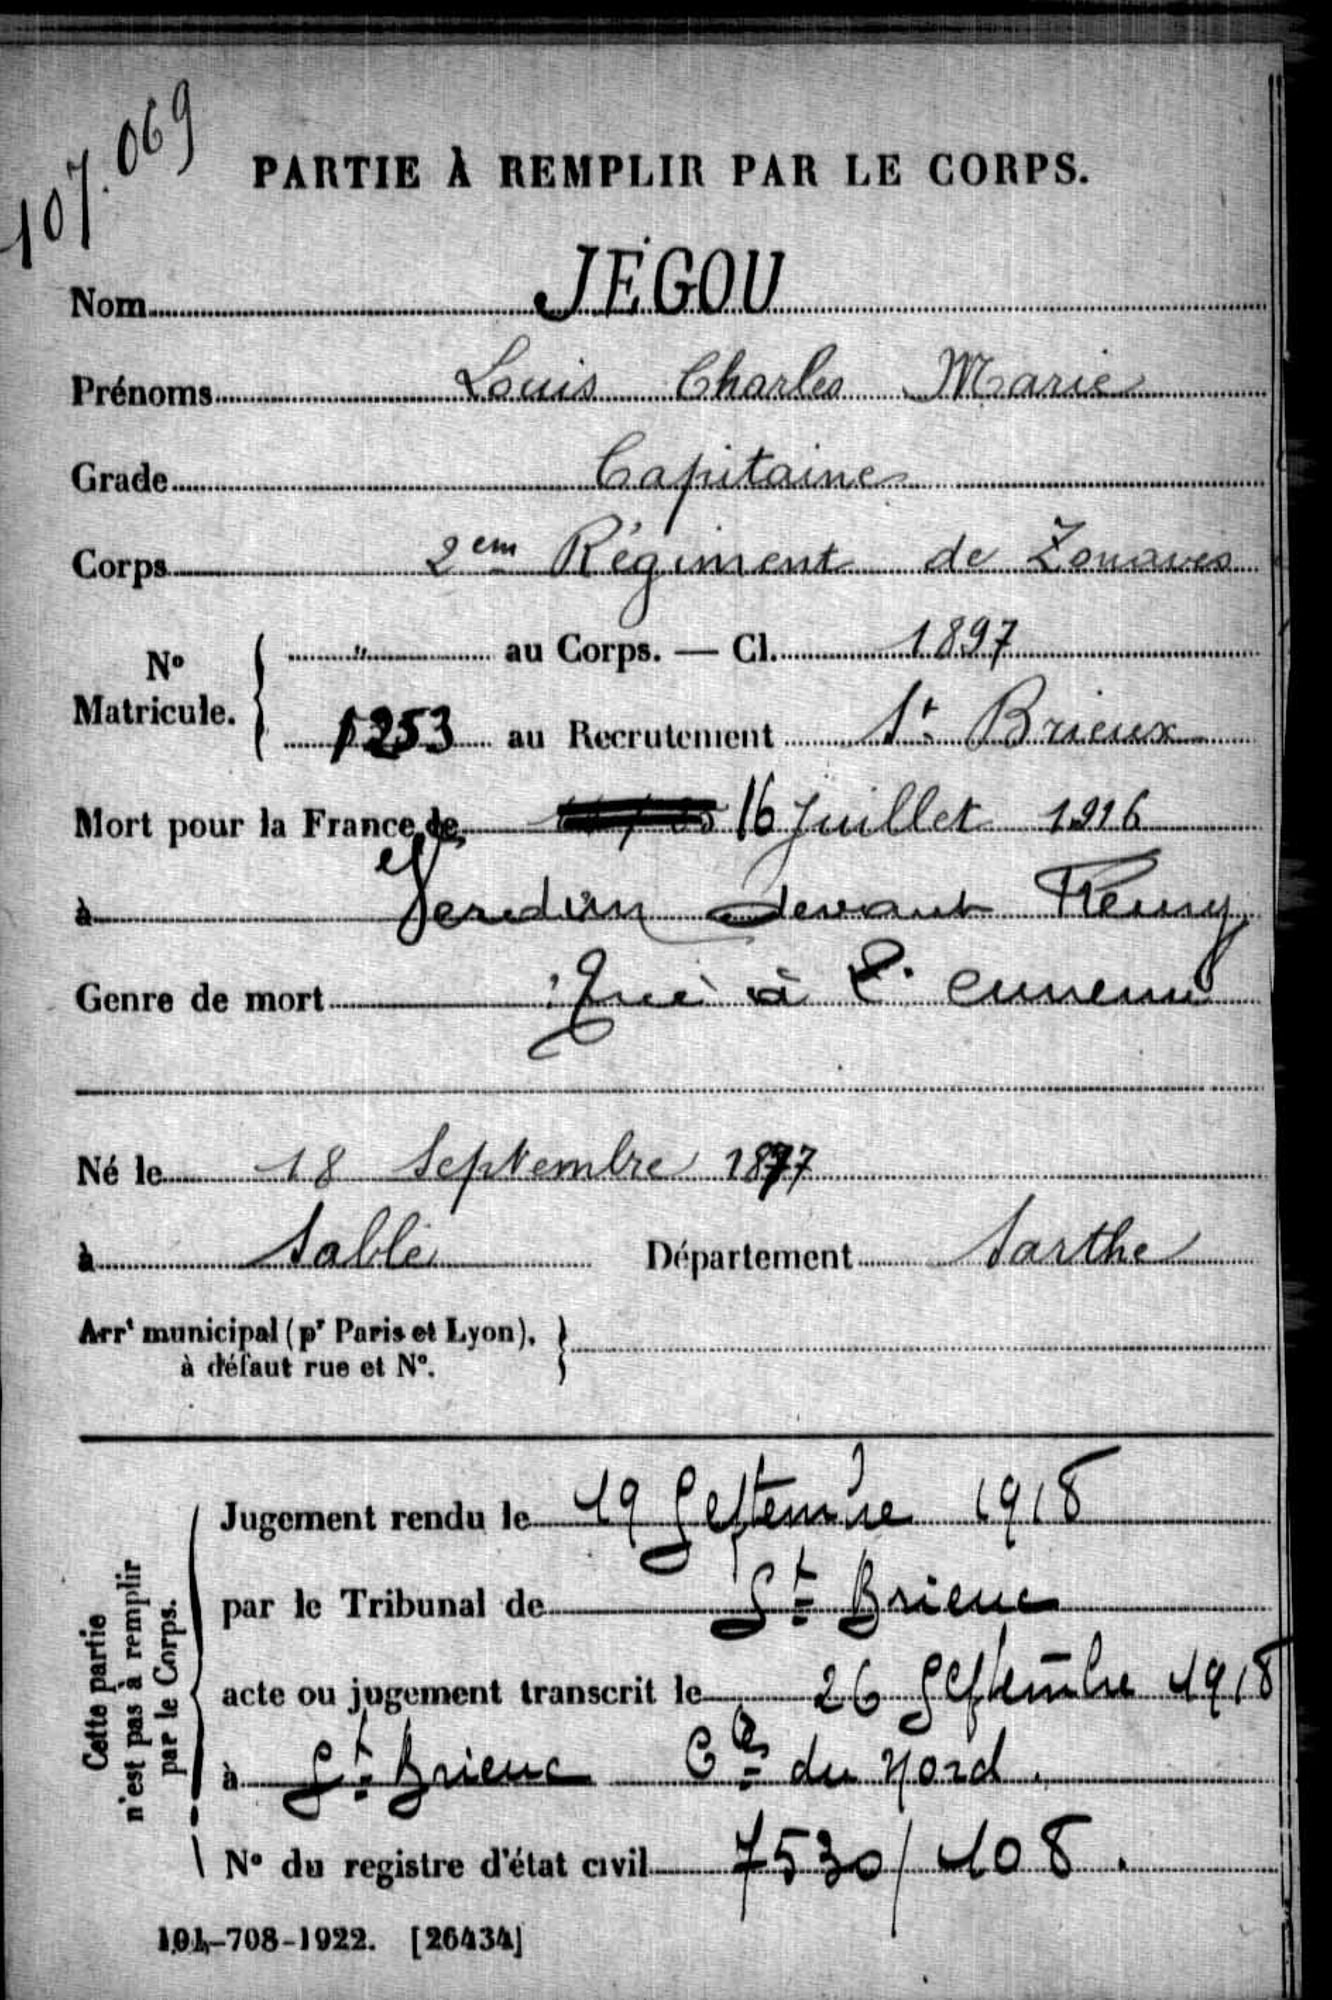 107.069
PARTIE À REMPLIR PAR LE CORPS.
Nom JÉGOU
Prénoms Louis Charles Marie
Grade Capitaine
Corps 2em Régiment de Zouaves
No Matricule. { " au Corps. — Cl. 1897
1253 au Recrutement St Brieux
Mort pour la France le 16 Juillet 1916
à Verdun devant Fleury
Genre de mort Tué à l'ennemi
Né le 18 Septembre 1877
à Sablé Département Sarthe
Arrt municipal (pr Paris et Lyon), }
à défaut rue et No.
Cette partie n'est pas à remplir par le Corps.
Jugement rendu le 19 Septembre 1918
par le Tribunal de St Brieuc
acte ou jugement transcrit le 26 Septembre 1918
à St Brieuc Ctes du Nord.
No du registre d'état civil 7530/108.
101-708-1922. [26434]